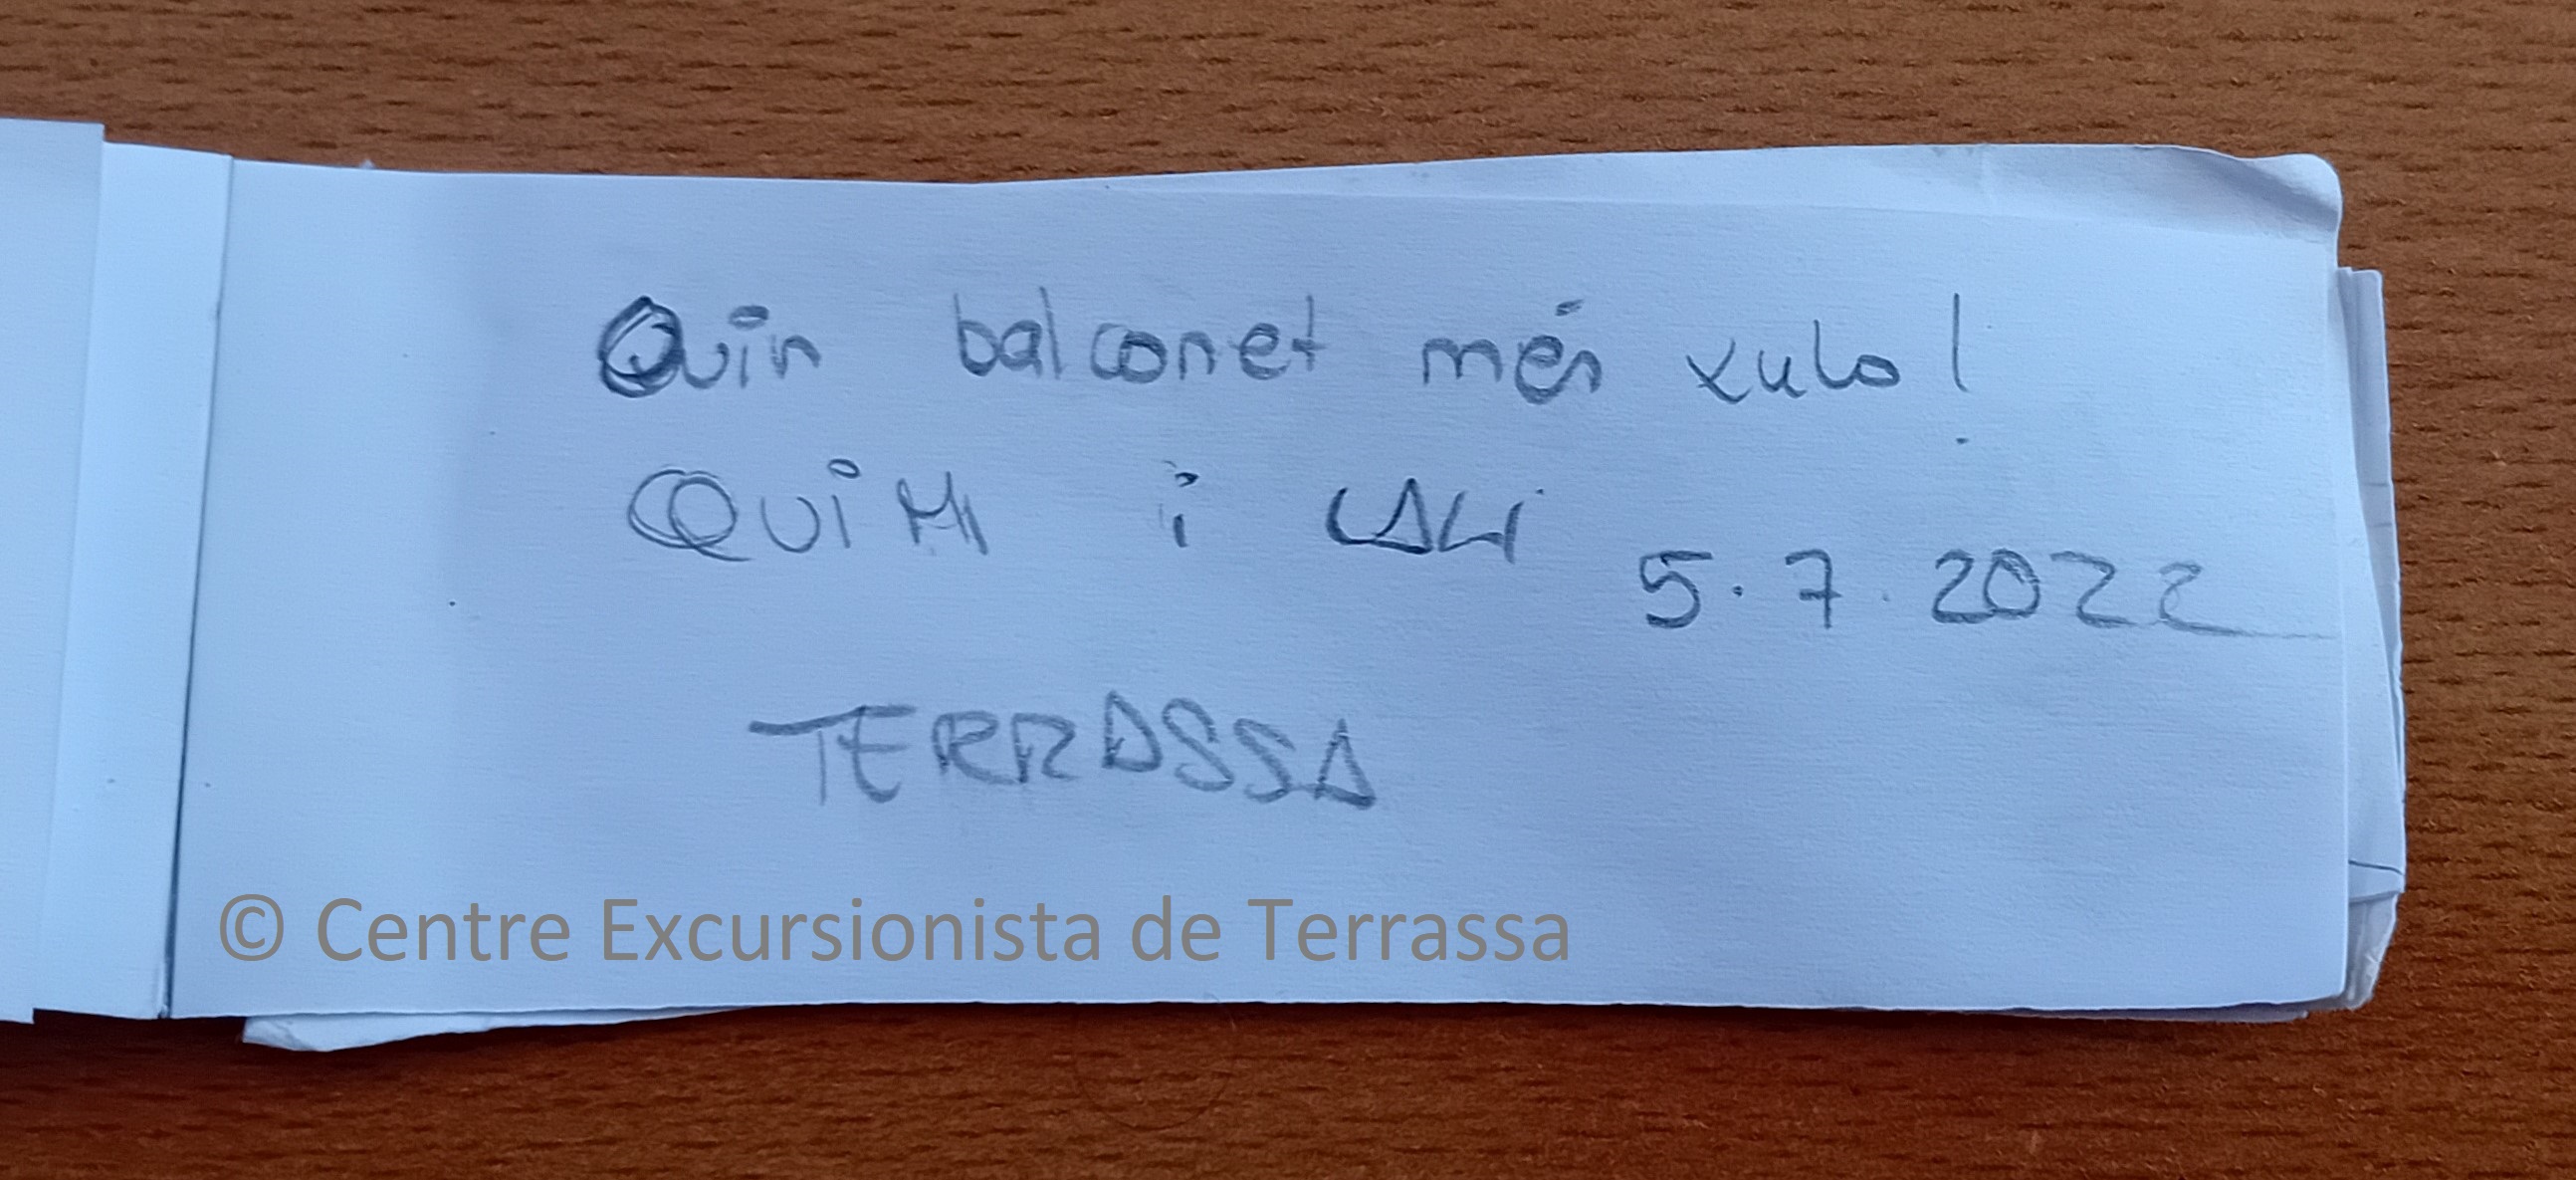 Quin balconet més xulo!
QUiM i LALi
5.7.2022
TERRASSA
© Centre Excursionista de Terrassa